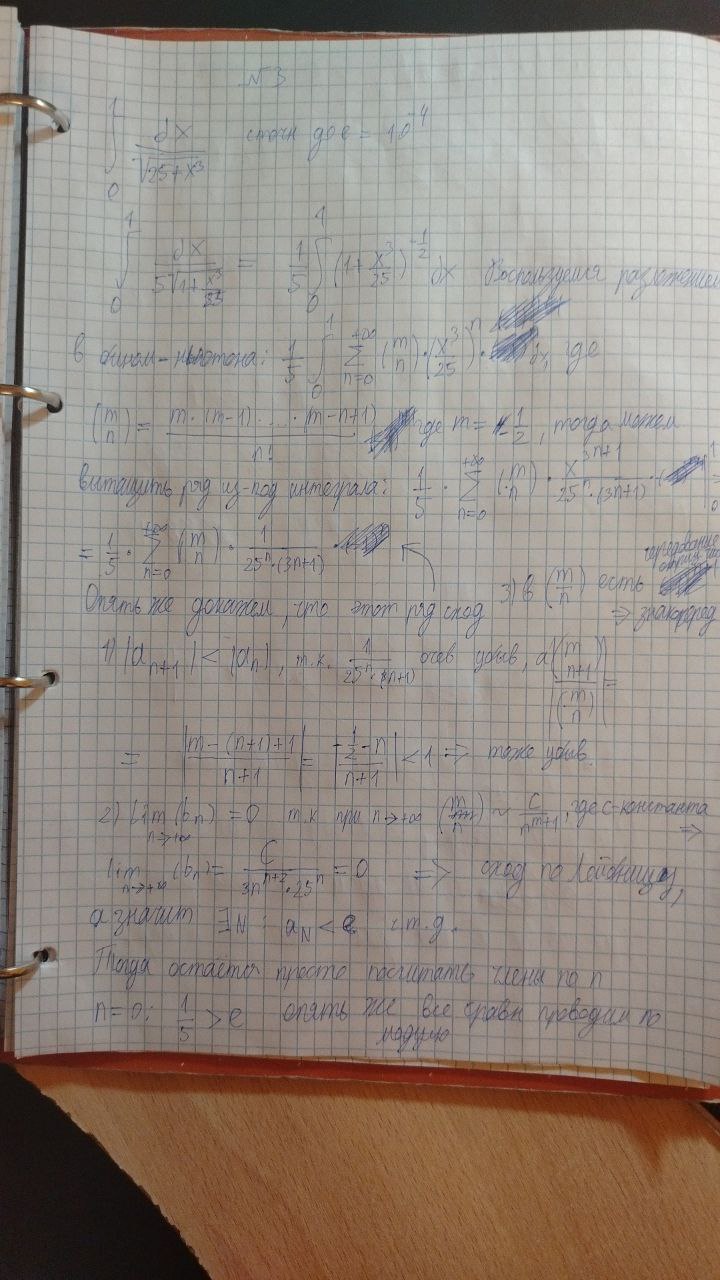 №3
∫₀¹ dx/√(25+x³) с точн до e = 10⁻⁴
∫₀¹ dx/(5√(1+x³/25)) = 1/5 ∫₀¹ (1+x³/25)^(-1/2) dx Воспользуемся разложением
в бином-Ньютона: 1/5 ∫₀¹ Σ_{n=0}^{+∞} (m n)·(x³/25)ⁿ · dx, где
(m n) = m·(m-1)·...·(m-n+1)/n! где m = -1/2, тогда можем
вытащить ряд из-под интеграла: 1/5 · Σ_{n=0}^{+∞} (m n) · x^{3n+1}/(25ⁿ·(3n+1)) |₀¹ =
= 1/5 · Σ_{n=0}^{+∞} (m n) · 1/(25ⁿ·(3n+1))
3) в (m n) есть чередование
⇒ знакочеред
Опять же докажем, что этот ряд сход
1) |a_{n+1}| < |a_n|, т.к. 1/(25ⁿ·(3n+1)) очев убыв, а |(m n+1)/(m n)| =
= |(m-(n+1)+1)/(n+1)| = |(-1/2-n)/(n+1)| < 1 ⇒ тоже убыв.
2) lim_{n→+∞} (b_n) = 0 т.к при n→+∞ (m n) ~ C/n^{m+1}, где c-константа ⇒
lim_{n→+∞} (b_n) = C/(3n^{n+2}·25ⁿ) = 0 ⇒ сход по Лейбницу,
а значит ∃N : a_N < e ч.т.д.
Тогда остаётся просто посчитать члены по n
n=0; 1/5 > e опять же все сравн проводим по
модулю